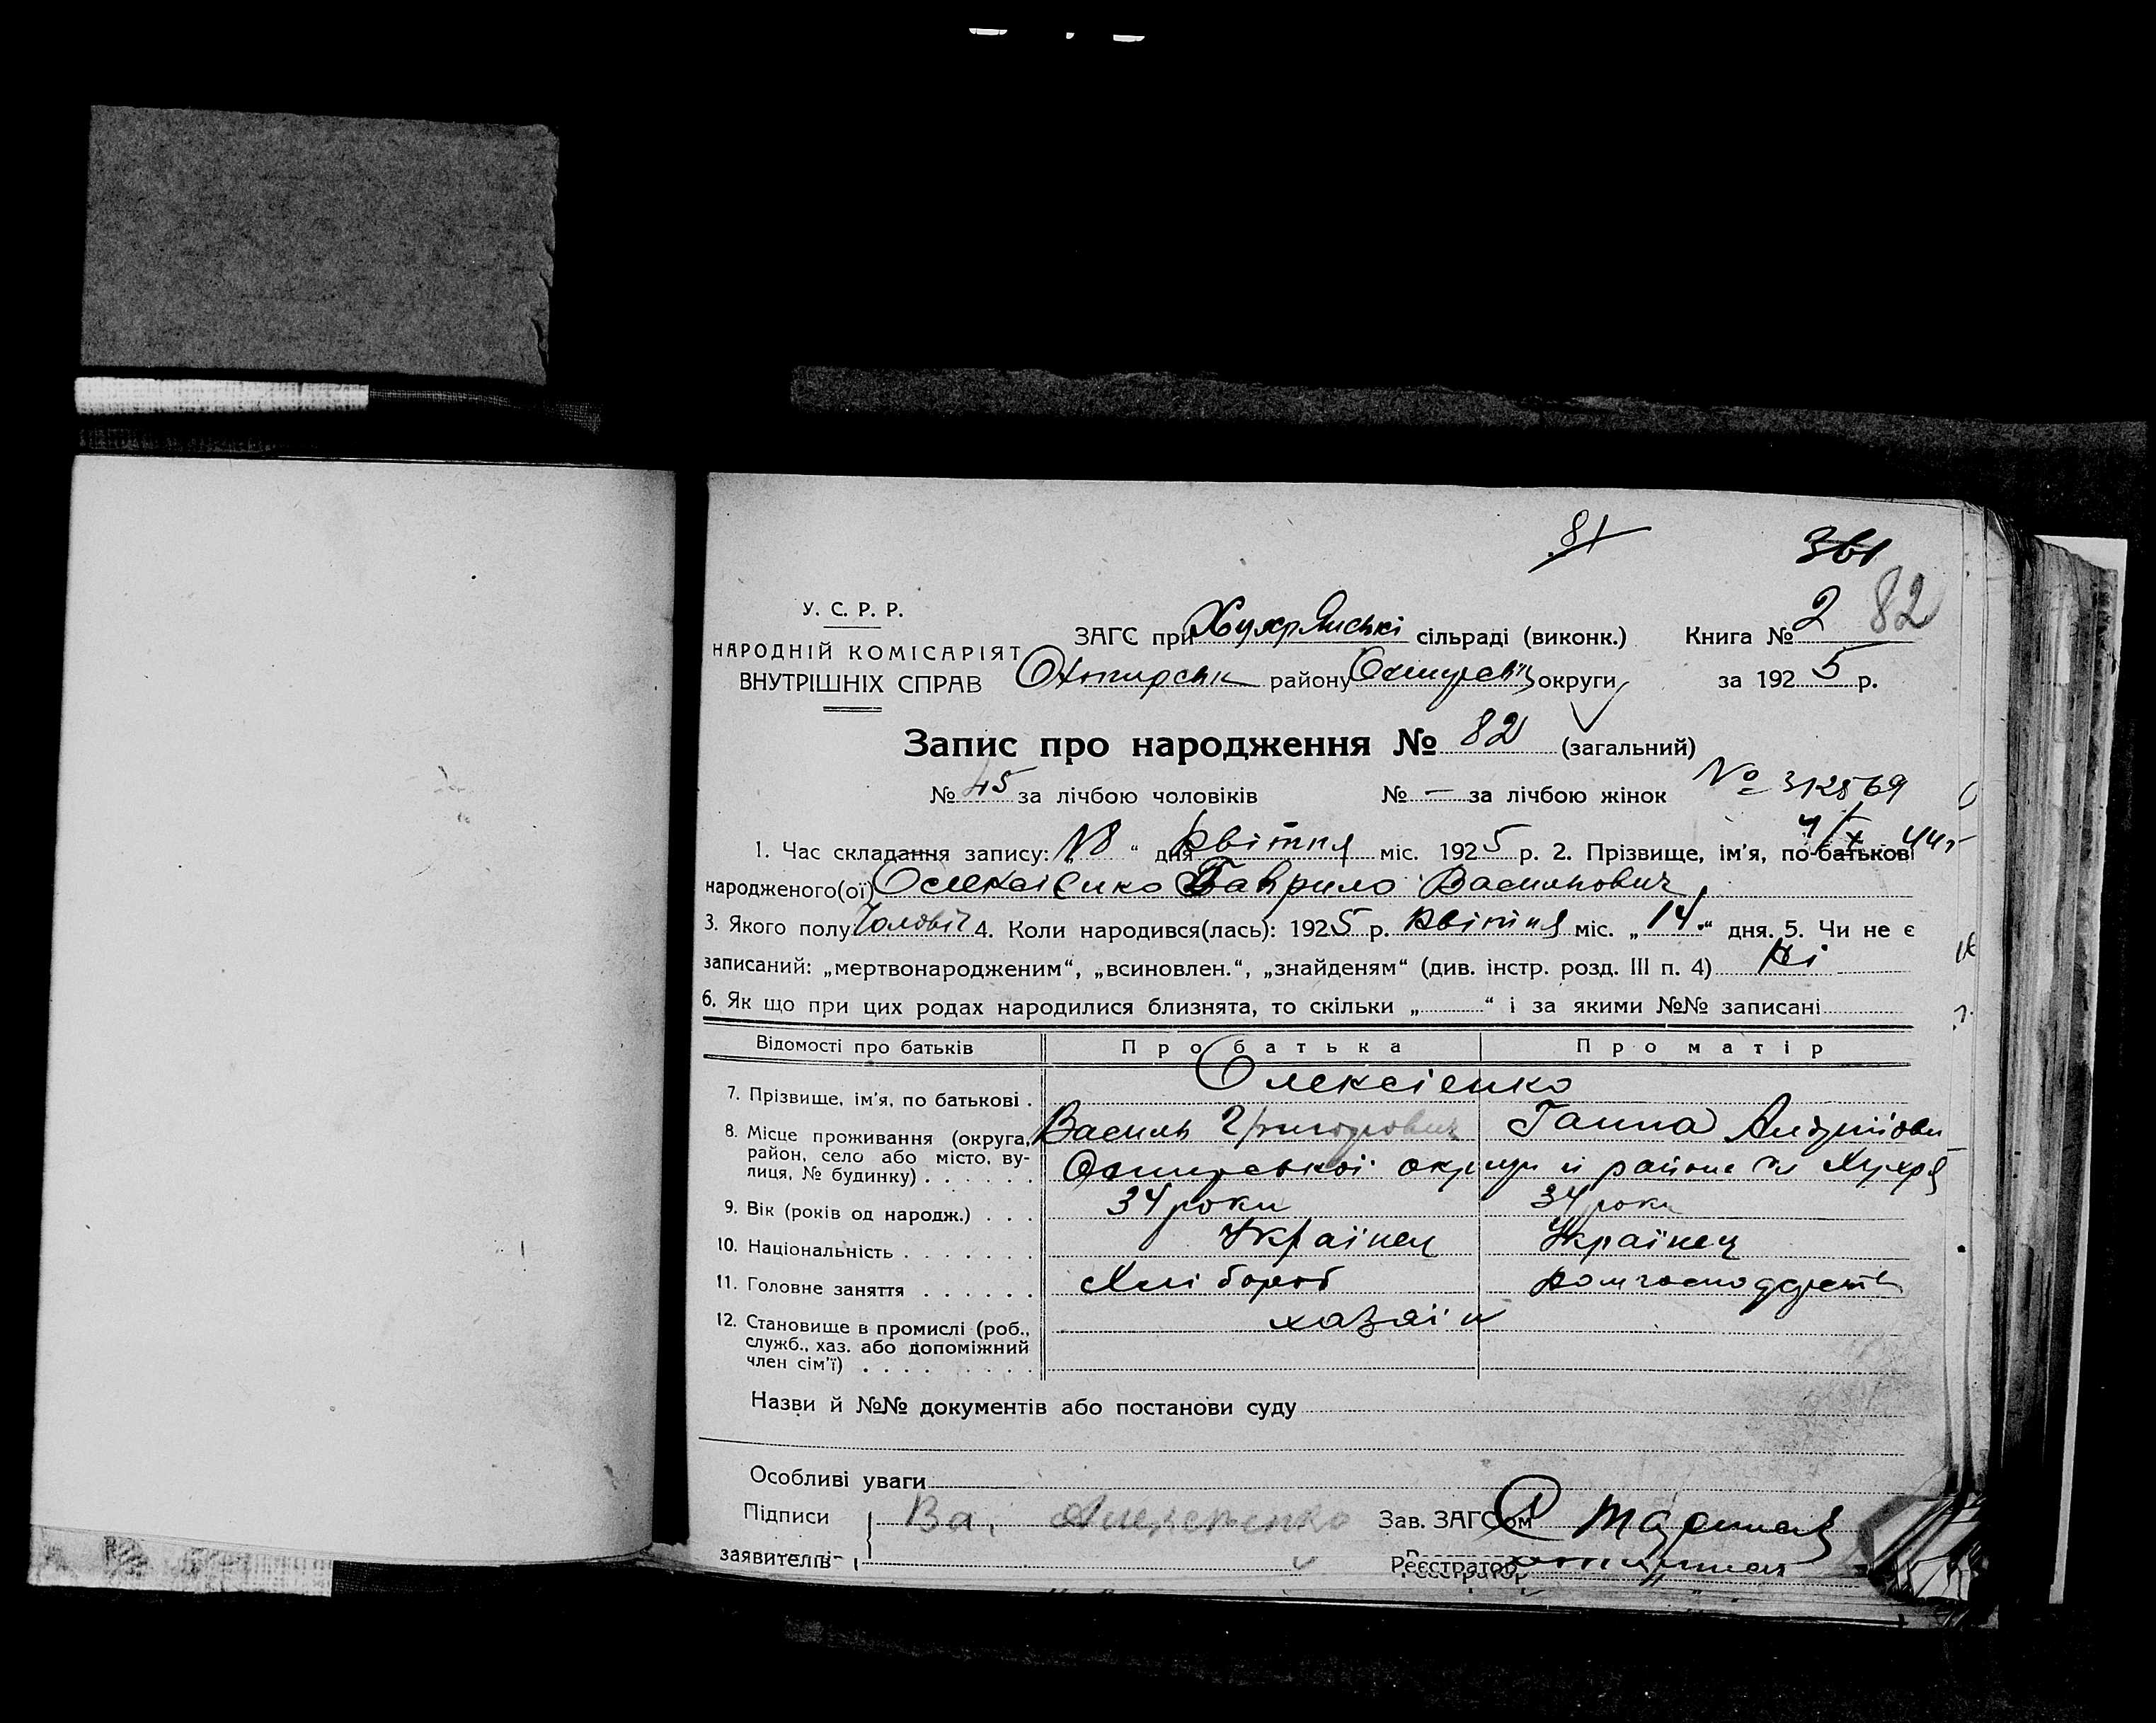 81
361
82
У. С. Р. Р.
НАРОДНІЙ КОМІСАРІЯТ
ВНУТРІШНІХ СПРАВ
ЗАГС при Хухрянські сільраді (виконк.) Книга № 2
Охтирськ району Охтирськ округи за 1925 р.
Запис про народження № 82 (загальний)
№ 45 за лічбою чоловіків № — за лічбою жінок
№ 312869
1. Час складання запису: „18“ дня квітня міс. 1925 р. 2. Прізвище, ім'я, по-батькові
народженого(ої) Олексієнко Гаврило Васильович
3. Якого полу Чоловіч 4. Коли народився(лась): 1925 р. квітня міс. „14“ дня. 5. Чи не є
записаний: „мертвонародженим“, „всиновлен.“, „знайденям“ (див. інстр. розд. III п. 4) Ні
6. Як що при цих родах народилися близнята, то скільки „ “ і за якими №№ записані
Відомості про батьків Про батька Про матір
7. Прізвище, ім'я, по батькові . Олексієнко
Василь Григорович Ганна Андріївн
8. Місце проживання (округа, район, село або місто, ву-
лиця, № будинку) . . . . . . Охтирської округи й района Хухря
9. Вік (років од народж.) . . . 34 роки 34 роки
10. Національність . . . . . . . Українец Українец
11. Головне заняття . . . . . . Хлібороб домгосподарств
12. Становище в промислі (роб., хазяїн
служб., хаз. або допоміжний
член сім'ї) . . . . . . . . .
Назви й №№ документів або постанови суду
Особливі уваги
Підписи Зав. ЗАГСом
заявителів Реєстратор